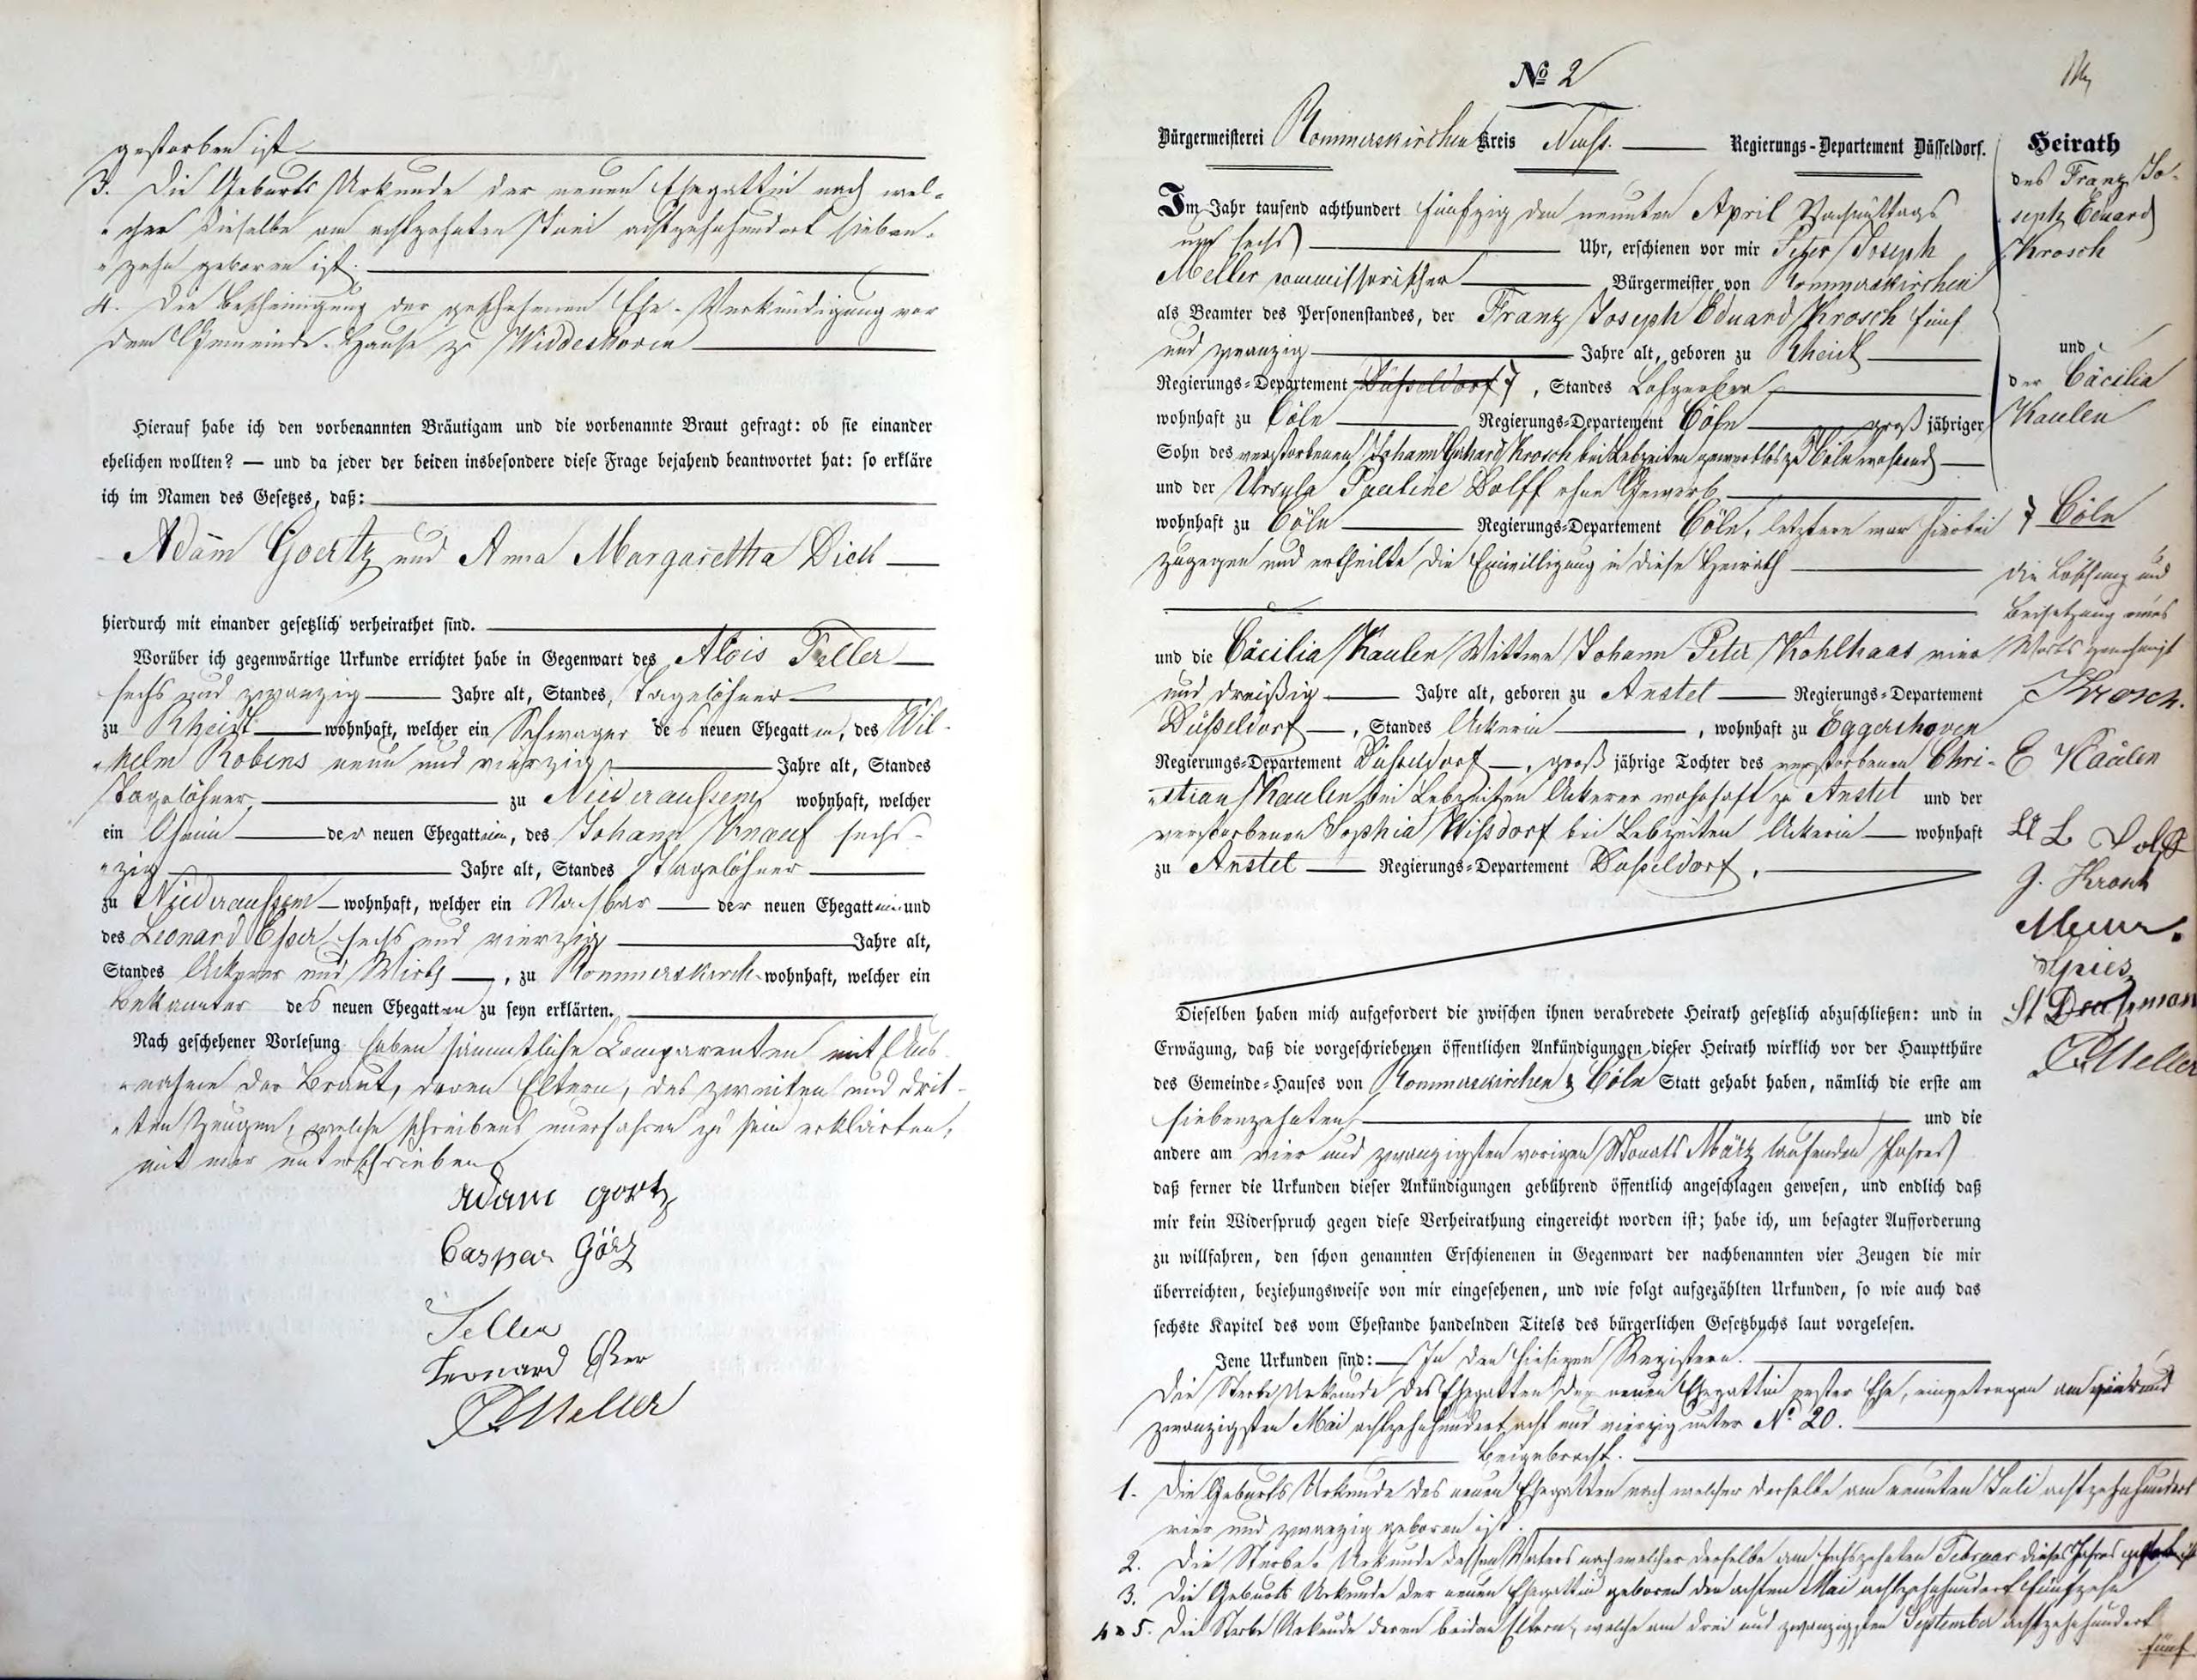 gestorben ist
3. Die Geburts Urkunde der neuen Ehegattin nach wel-
cher dieselbe am achtzehnten Juni achtzehnhundert sieben-
zehn geboren ist.
4. Die Bescheinigung der geschehenen Ehe-Verkündigung vor
dem Gemeinde-Hause zu Widdeshoven
Hierauf habe ich den vorbenannten Bräutigam und die vorbenannte Braut gefragt: ob sie einander
ehelichen wollten? — und da jeder der beiden insbesondere diese Frage bejahend beantwortet hat: so erkläre
ich im Namen des Gesetzes, daß:
Adam Goertz und Anna Margaretha Dick
hierdurch mit einander gesetzlich verheirathet sind.
Worüber ich gegenwärtige Urkunde errichtet habe in Gegenwart des Alois Feller
sechs und zwanzig Jahre alt, Standes, Tagelöhner
zu Rheidt wohnhaft, welcher ein Schwager des neuen Ehegatten, des Wil-
helm Robens neun und vierzig Jahre alt, Standes
Tagelöhner zu Niederaussem wohnhaft, welcher
ein Oheim der neuen Ehegattinn, des Johann Knauf sech-
zig Jahre alt, Standes Tagelöhner
zu Niederaussem wohnhaft, welcher ein Nachbar der neuen Ehegattinn und
des Leonard Esser sechs und vierzig Jahre alt,
Standes Ackerer und Wirth, zu Rommerskirch. wohnhaft, welcher ein
Bekannter des neuen Ehegatten zu seyn erklärten.
Nach geschehener Vorlesung haben sämmtliche Comparenten mit Aus-
nahme der Braut, deren Eltern, des zweiten und drit-
ten Zeugen, welche schreibens unerfahren zu sein erklärten,
mit mir unterschrieben
Adam gortz
Caspar Görz
Feller
Leonard Esser
PJMeller
№ 2
Bürgermeisterei Rommerskirchen Kreis Neuss. Regierungs-Departement Düsseldorf.
Im Jahr tausend achthundert fünfzig den neunten April Nachmittags
um sechs Uhr, erschienen vor mir Peter Joseph
Meller commissarischer Bürgermeister von Rommerskirchen
als Beamter des Personenstandes, der Franz Joseph Eduard Krosch fünf
und zwanzig Jahre alt, geboren zu Rheidt
Regierungs-Departement Düsseldorf, Standes Lohgerber
wohnhaft zu Cöln Regierungs-Departement Cöln groß jähriger
Sohn des verstorbenen Johann Gerhard Krosch bei Lebzeiten gewerblos zu Cöln wohnend
und der Ursula Pauline Dolff ohne Gewerb
wohnhaft zu Cöln Regierungs-Departement Cöln, letztere war hierbei
zugegen und ertheilte die Einwilligung in diese Heirath
und die Cäcilia Kaulen Wittwe Johann Peter Kohlhaas vier
und dreißig Jahre alt, geboren zu Anstel Regierungs-Departement
Düsseldorf, Standes Ackerin, wohnhaft zu Eggershoven
Regierungs-Departement Düsseldorf, groß jährige Tochter des verstorbenen Chri-
stian Kaulen bei Lebzeiten Ackerer wohnhaft zu Anstel und der
verstorbenen Sophia Wißdorf bei Lebzeiten Ackerin wohnhaft
zu Anstel Regierungs-Departement Düsseldorf.
Dieselben haben mich aufgefordert die zwischen ihnen verabredete Heirath gesetzlich abzuschließen: und in
Erwägung, daß die vorgeschriebenen öffentlichen Ankündigungen dieser Heirath wirklich vor der Hauptthüre
des Gemeinde-Hauses von Rommerskirchen & Cöln Statt gehabt haben, nämlich die erste am
siebenzehnten und die
andere am vier und zwanzigsten vorigen Monats März laufenden Jahres
daß ferner die Urkunden dieser Ankündigungen gebührend öffentlich angeschlagen gewesen, und endlich daß
mir kein Widerspruch gegen diese Verheirathung eingereicht worden ist; habe ich, um besagter Aufforderung
zu willfahren, den schon genannten Erschienenen in Gegenwart der nachbenannten vier Zeugen die mir
überreichten, beziehungsweise von mir eingesehenen, und wie folgt aufgezählten Urkunden, so wie auch das
sechste Kapitel des vom Ehestande handelnden Titels des bürgerlichen Gesetzbuchs laut vorgelesen.
Jene Urkunden sind: In den hiesigen Registern.
Die Sterbe Urkunde des Ehegatten der neuen Ehegattin erster Ehe, eingetragen am und
zwanzigsten Mai achtzehnhundert acht und vierzig unter No 20.
Beigebracht.
1. Die Geburts Urkunde des neuen Ehegatten nach welcher derselbe am neunten Juli achtzehnhundert
vier und zwanzig geboren ist.
2. Die Sterbe-Urkunde dessen Vaters nach welcher derselbe am sechszehnten Februar dieses Jahres gestorben ist
3. Die Geburts Urkunde der neuen Ehegattin geboren den achten Mai achtzehnhundert fünfzehn
4 & 5. Die Sterbe Urkunde deren beiden Eltern, welche am drei und zwanzigsten September achtzehnhundert
fünf
Heirath
des Franz Jo-
seph Eduard
Krosch
und
der Cäcilia
Kaulen
Cöln
die Löschung und
Beisetzung eines
Worts genehmigt
Krosch.
C Kaulen
U L Dolff
J. Krosch
Spies
PJMeller